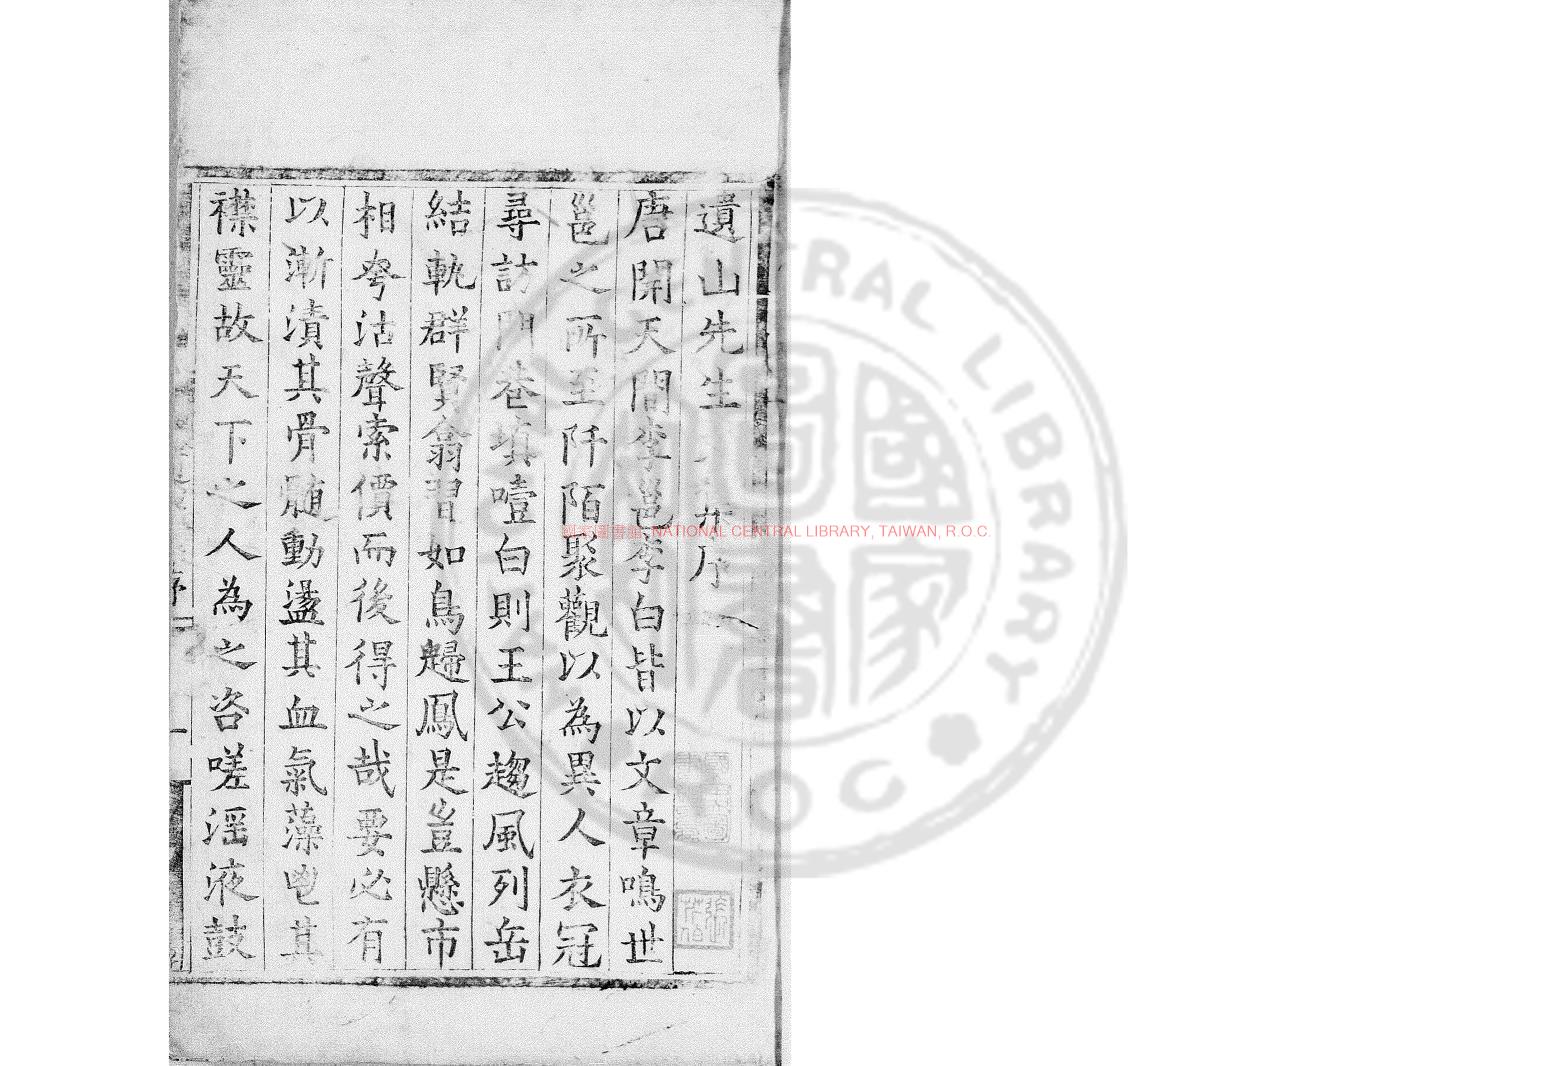 遺山先生文集序
唐開天間李邕李白皆以文章鳴世
邕之所至阡陌聚觀以為異人衣冠
尋訪門巷填噎白則王公趨風列岳
結軌群賢翕習如鳥歸鳳是豈懸市
相夸沽聲索價而後得之哉要必有
以漸漬其骨髓動盪其血氣藻其
襟靈故天下之人為之咨嗟滛液鼓
國家圖書館 NATIONAL CENTRAL LIBRARY, TAIWAN, R.O.C.